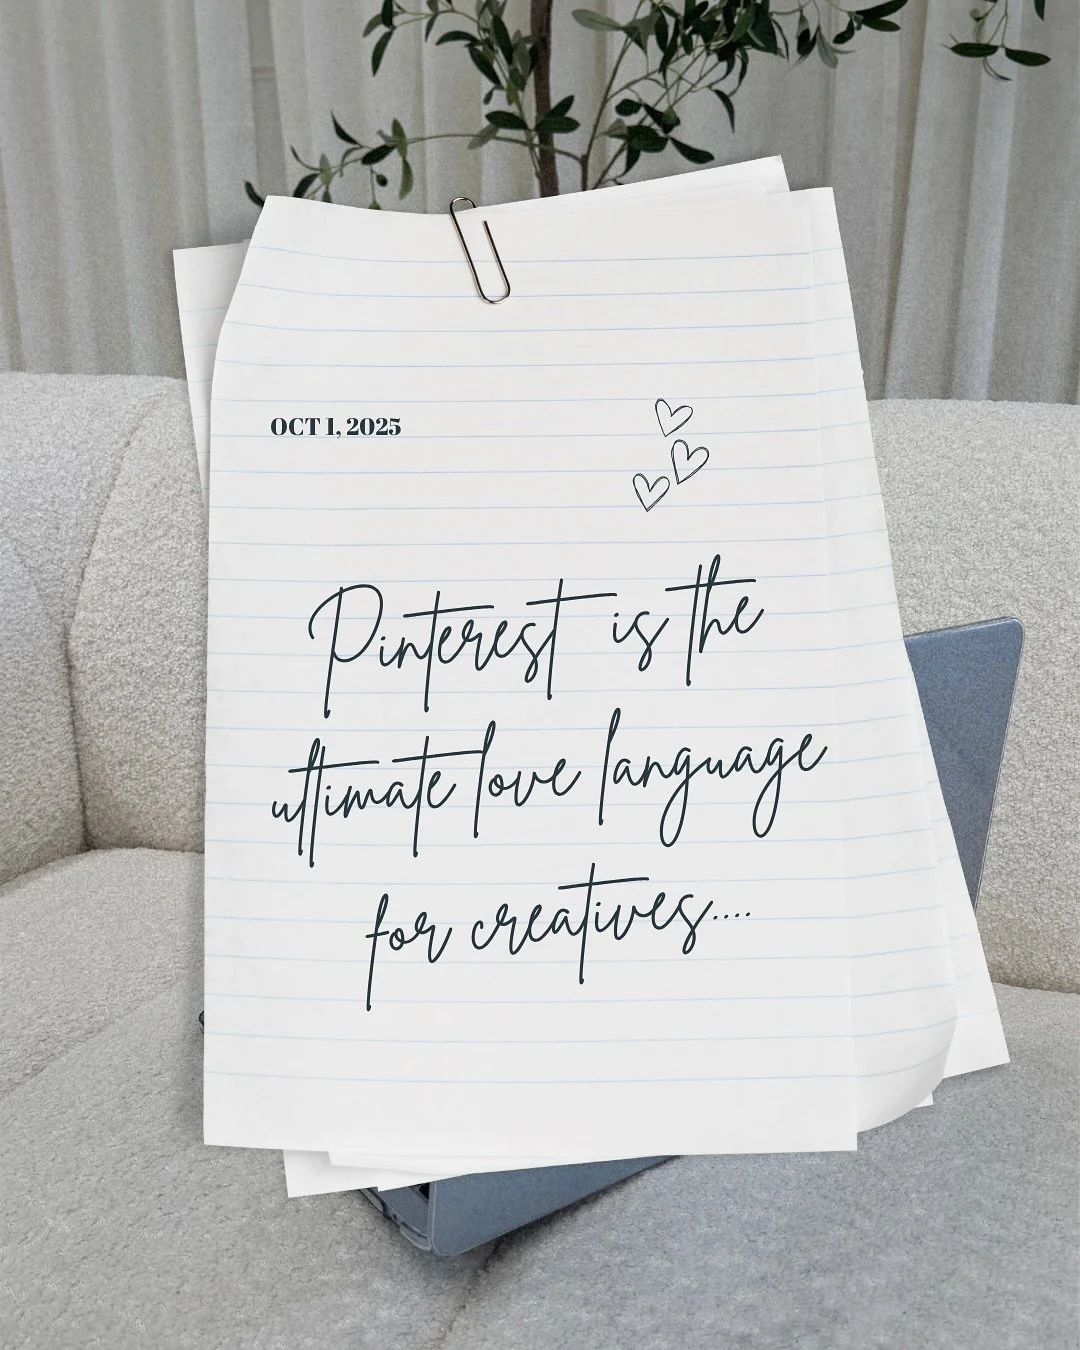 OCT 1, 2025
Pinterest is the
ultimate love language
for creatives....